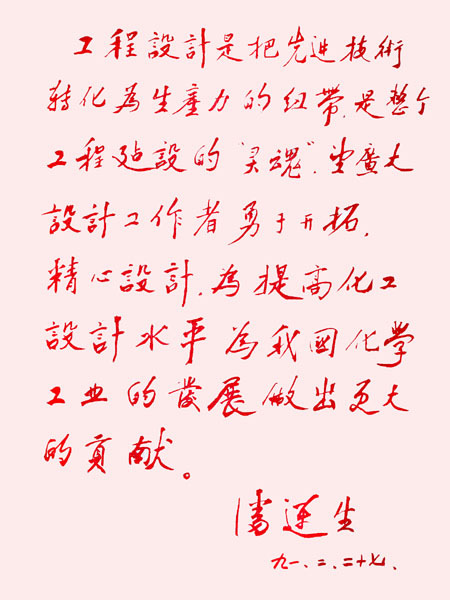 工程設計是把先進技術
轉化為生産力的纽帶,是整个
工程建設的“灵魂”.望廣大
設計工作者勇于开拓,
精心設計,為提高化工
設計水平為我國化學
工业的發展做出更大
的貢献。
潘連生
九一.二.二十七.